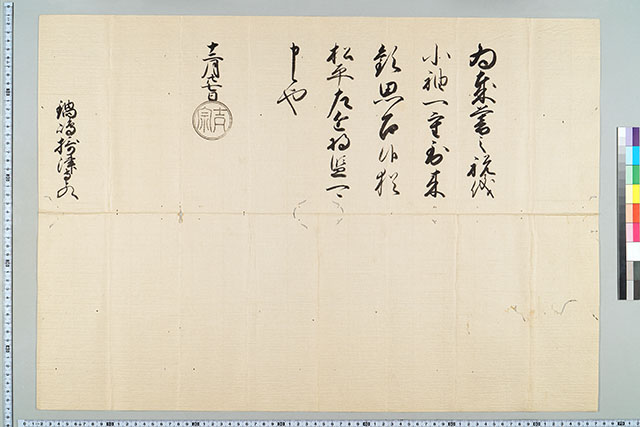 為歳暮之祝儀
小袖一重到来
歓思召候猶
松平左近将監可
申也
十二月廿七日
吉宗
鍋嶋摂津守とのへ